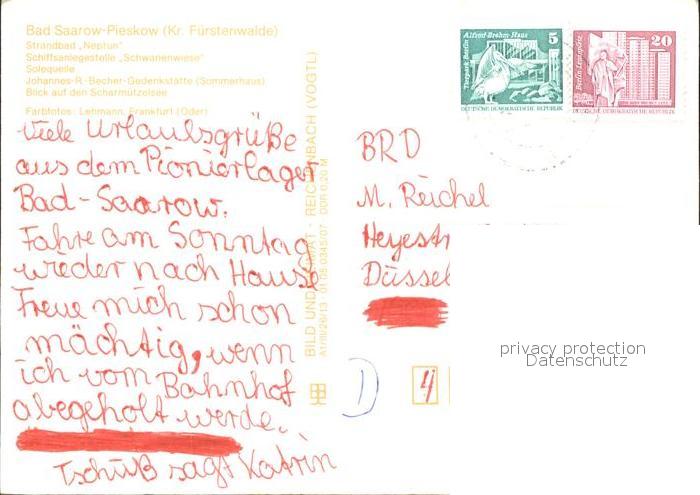 Bad Saarow-Pieskow (Kr. Fürstenwalde)
Strandbad „Neptun"
Schiffsanlegestelle „Schwanenwiese"
Solequelle
Johannes-R-Becher-Gedenkstätte (Sommerhaus)
Blick auf den Scharmützelsee
Farbfotos: Lehmann, Frankfurt (Oder)
Viele Urlaubsgrüße
aus dem Pionierlager
Bad-Saarow.
Fahre am Sonntag
wieder nach Hause
Freue mich schon
mächtig, wenn
ich vom Bahnhof
abgeholt werde.
Tschüß sagt Katrin
BILD UND HEIMAT · REICHENBACH (VOGTL)
01 08 0345/07 DDR 0,20 M
Tierpark Berlin
Alfred-Brehm-Haus
5
DEUTSCHE DEMOKRATISCHE REPUBLIK
Berlin Leninplatz
20
DEUTSCHE DEMOKRATISCHE REPUBLIK
BRD
M. Reichel
Heyestr
Düssel
D
4
privacy protection
Datenschutz